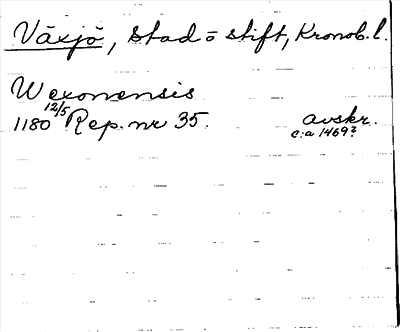 Växjö, stad o stift, Kronob. l.
Wexonensis
1180 12/5 Rep. nr 35. avskr.
c:a 1469?